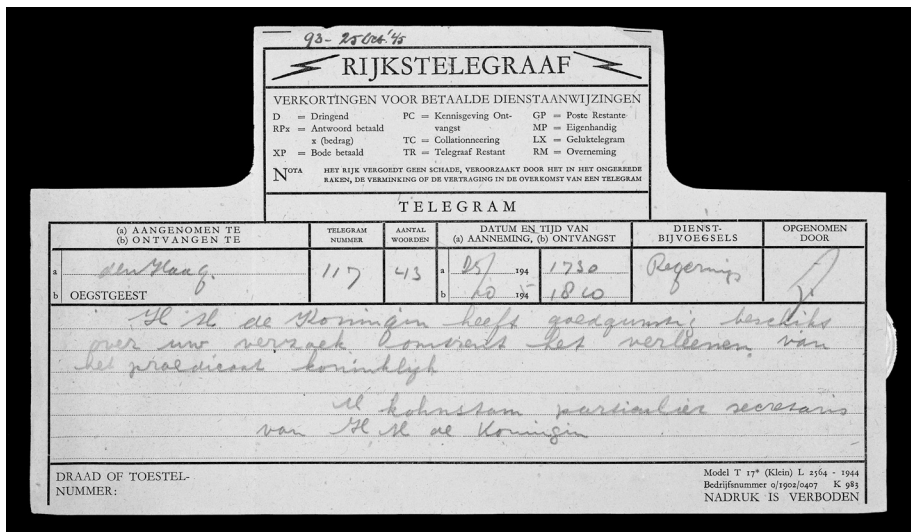 93 - 25 Oct. '45
RIJKSTELEGRAAF
VERKORTINGEN VOOR BETAALDE DIENSTAANWIJZINGEN
D = Dringend
RPx = Antwoord betaald
x (bedrag)
XP = Bode betaald
PC = Kennisgeving Ont-
vangst
TC = Collationneering
TR = Telegraaf Restant
GP = Poste Restante
MP = Eigenhandig
LX = Geluktelegram
RM = Overneming
NOTA HET RIJK VERGOEDT GEEN SCHADE, VEROORZAAKT DOOR HET IN HET ONGEREEDE
RAKEN, DE VERMINKING OF DE VERTRAGING IN DE OVERKOMST VAN EEN TELEGRAM
TELEGRAM
(a) AANGENOMEN TE
(b) ONTVANGEN TE
TELEGRAM
NUMMER
AANTAL
WOORDEN
DATUM EN TIJD VAN
(a) AANNEMING, (b) ONTVANGST
DIENST-
BIJVOEGSELS
OPGENOMEN
DOOR
a den Haag. 117 43 a 25/ 194 1730 Regerings
b OEGSTGEEST b 194 1810
H M de Koningin heeft goedgunstig beschikt
over uw verzoek omtrent het verleenen van
het praedicaat koninklijk
M kohnstam particulier secretaris
van H M de Koningin
DRAAD OF TOESTEL-
NUMMER:
Model T 17* (Klein) L 2564 - 1944
Bedrijfsnummer 0/1902/0407 K 983
NADRUK IS VERBODEN